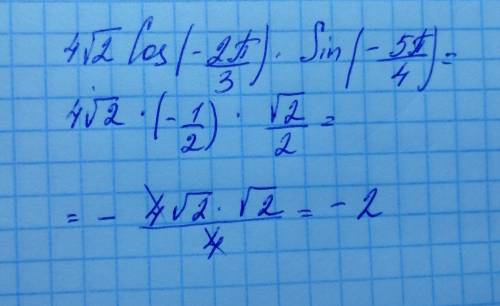 4√2 Cos(-2π/3) · Sin(-5π/4) =
4√2 · (-1/2) · √2/2 =
= - 4√2 · √2/4 = -2